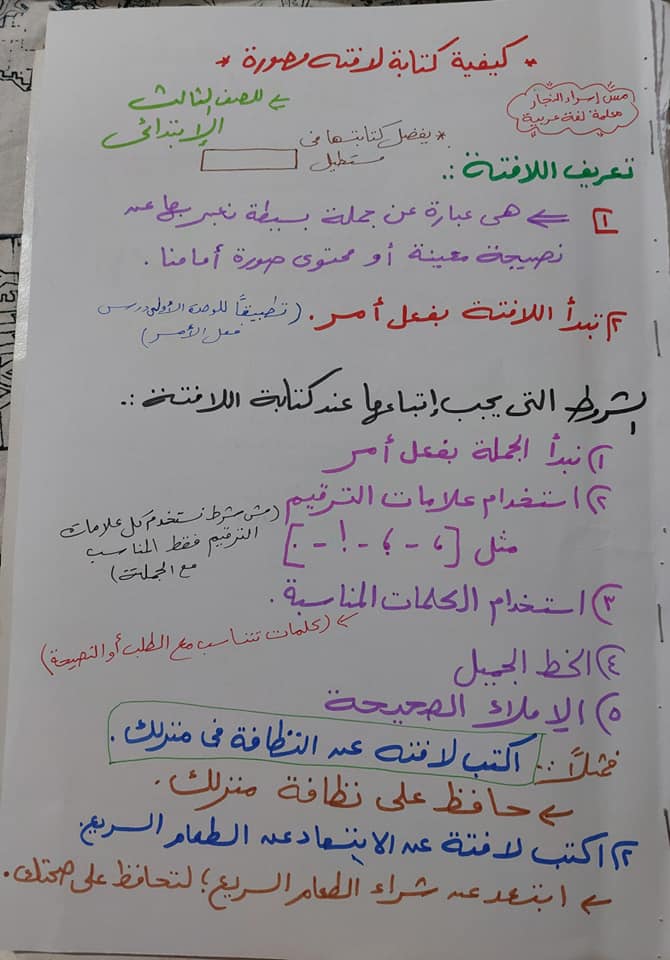 * كيفية كتابة لافته مصورة *
مس إسراء النجار
معلمة لغة عربية
للصف الثالث
الإبتدائى
* يفضل كتابتها فى
مستطيل
تعريف اللافتة :.
١ ⇐ هى عبارة عن جملة بسيطة نعبر بها عن
نصيحة معينة أو محتوى صورة أمامنا .
٢ تبدأ اللافتة بفعل أمر . (تطبيقًا للوحدة الأولى درس
فعل الأمر)
الشروط التى يجب إتباعها عند كتابة اللافتة :.
١) نبدأ الجملة بفعل أمر
٢) استخدام علامات الترقيم (مش شرط نستخدم كل علامات
الترقيم فقط المناسب
مع الجملة)
مثل [، - ؛ - ! - .]
٣) استخدام الكلمات المناسبة .
(كلمات تتناسب مع الطلب أو النصيحة)
٤) الخط الجميل
٥) الإملاء الصحيحة
فمثلاً :: اكتب لافته عن النظافة فى منزلك .
← حافظ على نظافة منزلك .
٢) اكتب لافتة عن الابتعاد عن الطعام السريع.
← ابتعد عن شراء الطعام السريع ؛ لتحافظ على صحتك .